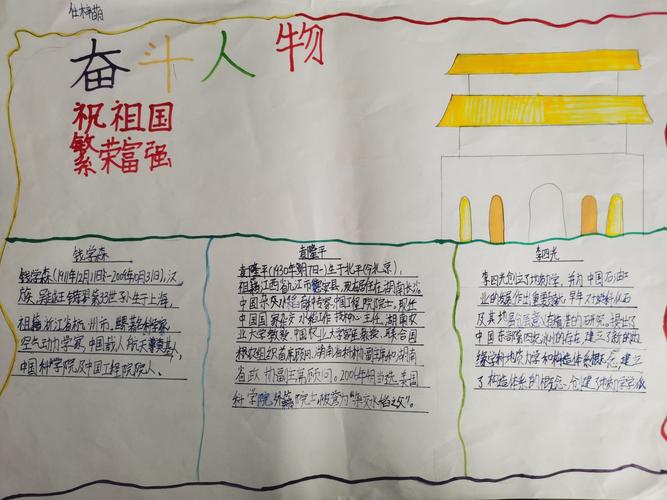 奋斗人物
祝祖国
繁荣富强
钱学森
钱学森(1911年12月11日-2009年10月31日),汉
族,吴越王钱镠第33世孙,生于上海,
祖籍浙江省杭州市。
空气动力学家,中国载人航天奠基人,
中国科学院及中国工程院院人。
袁隆平
袁隆平(1930年9月7日-)生于北平(今北京),
祖籍江西省九江市德安县,现居住在湖南长沙
中国杂交水稻育种专家,中国工程院院士,现任
中国国家杂交水稻工作技中心主任,湖南农
业大学教授,中国农业大学客座教授,联合国
粮农组织首席顾问,湖南省科协副主席和湖南
省政协副主席顾问。2006年4月当选美国
科学院外籍院士,被誉为"杂交水稻之父"。
李四光
李四光创立了地质力学,并为中国石油工
业的发展作出重要贡献,早年对蜓科化石
及其地层
中国东部第四纪冰川的存在,建立了新的边
缘学科地质力学和构造体系概念,建立
了构造体系的概念,创建了地质力学学派